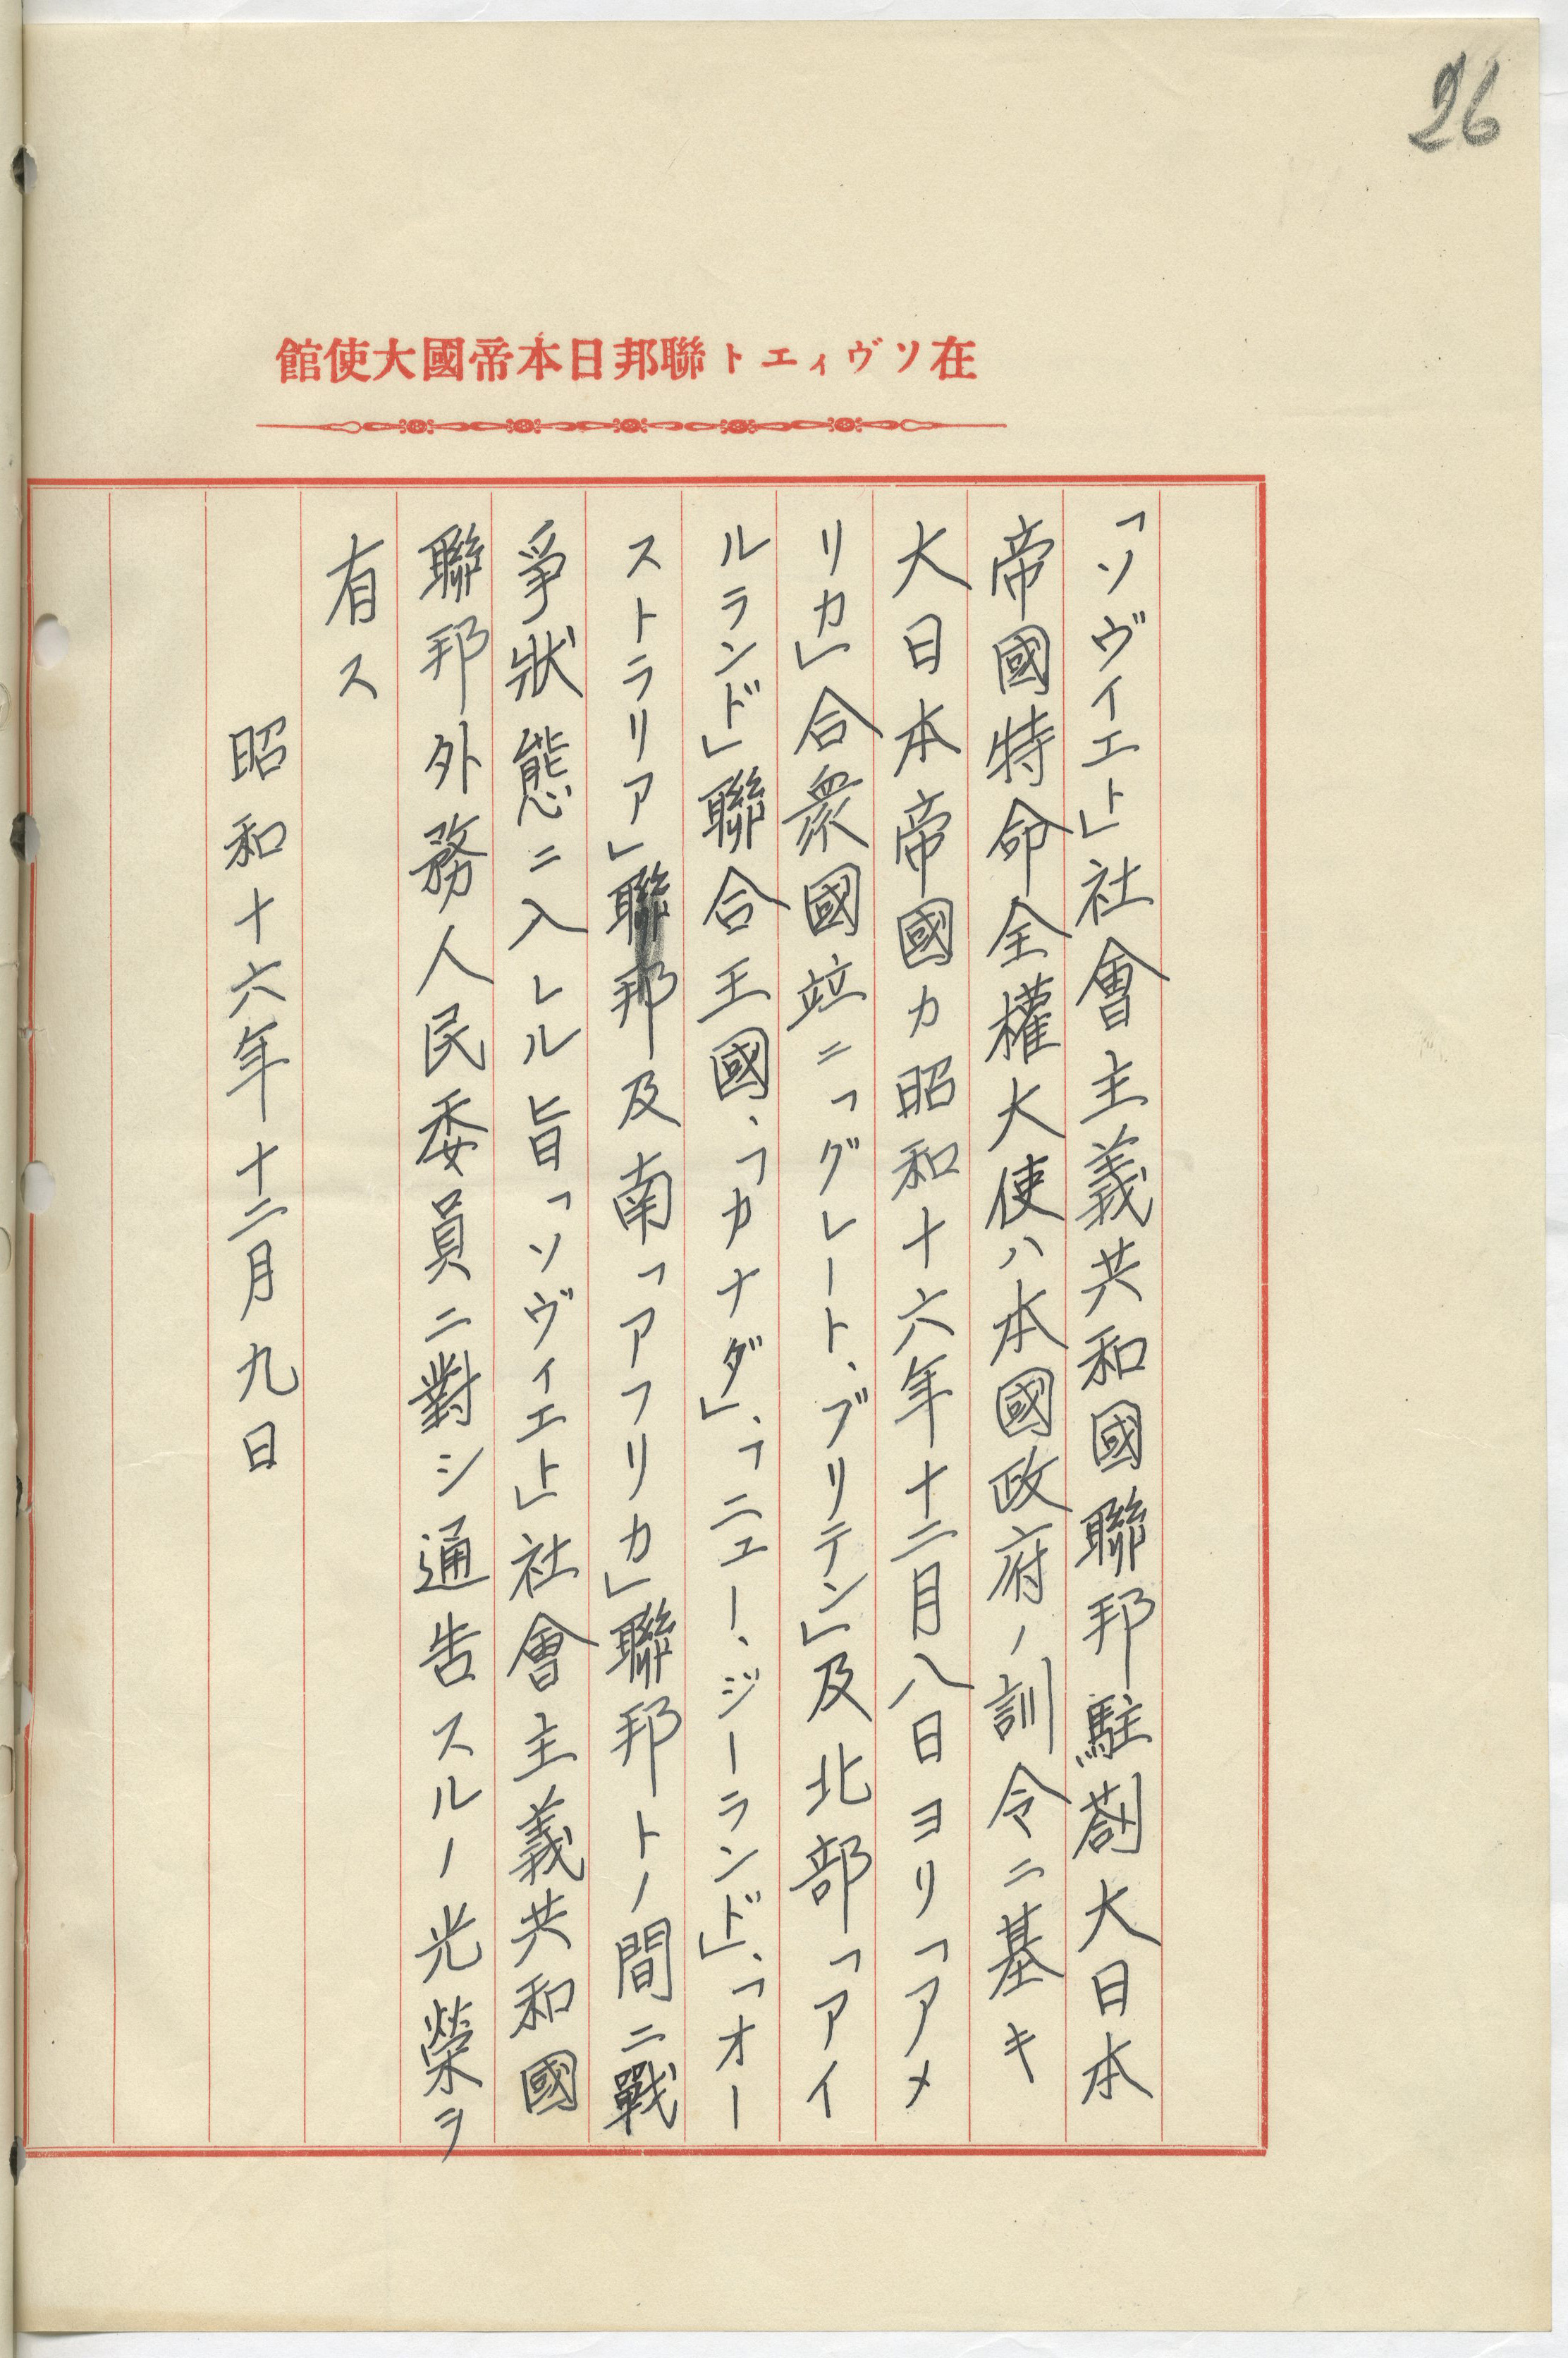 26
在ソヴィエト聯邦日本帝國大使館
「ソヴイエト」社會主義共和國聯邦駐剳大日本
帝國特命全權大使ハ本國政府ノ訓令ニ基キ
大日本帝國カ昭和十六年十二月八日ヨリ「アメ
リカ」合衆國竝ニ「グレート、ブリテン」及北部「アイ
ルランド」聯合王國、「カナダ」、「ニュー、ジーランド」、「オー
ストラリア」聯邦及南「アフリカ」聯邦トノ間ニ戰
爭狀態ニ入レル旨「ソヴィエト」社會主義共和國
聯邦外務人民委員ニ對シ通告スルノ光榮ヲ
有ス
昭和十六年十二月九日